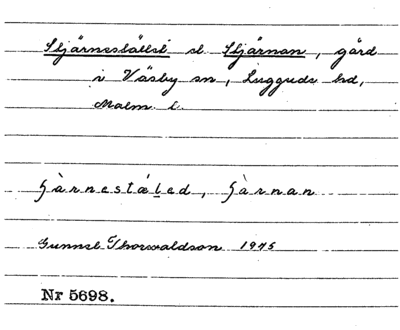 Stjärnestället el. Stjärnan, gård
i Väsby sn, Luggude hd,
Malm. l.
ʃàrnestæ̀led, ʃàrnan
Gunnel Thorvaldson 1975
Nr 5698.